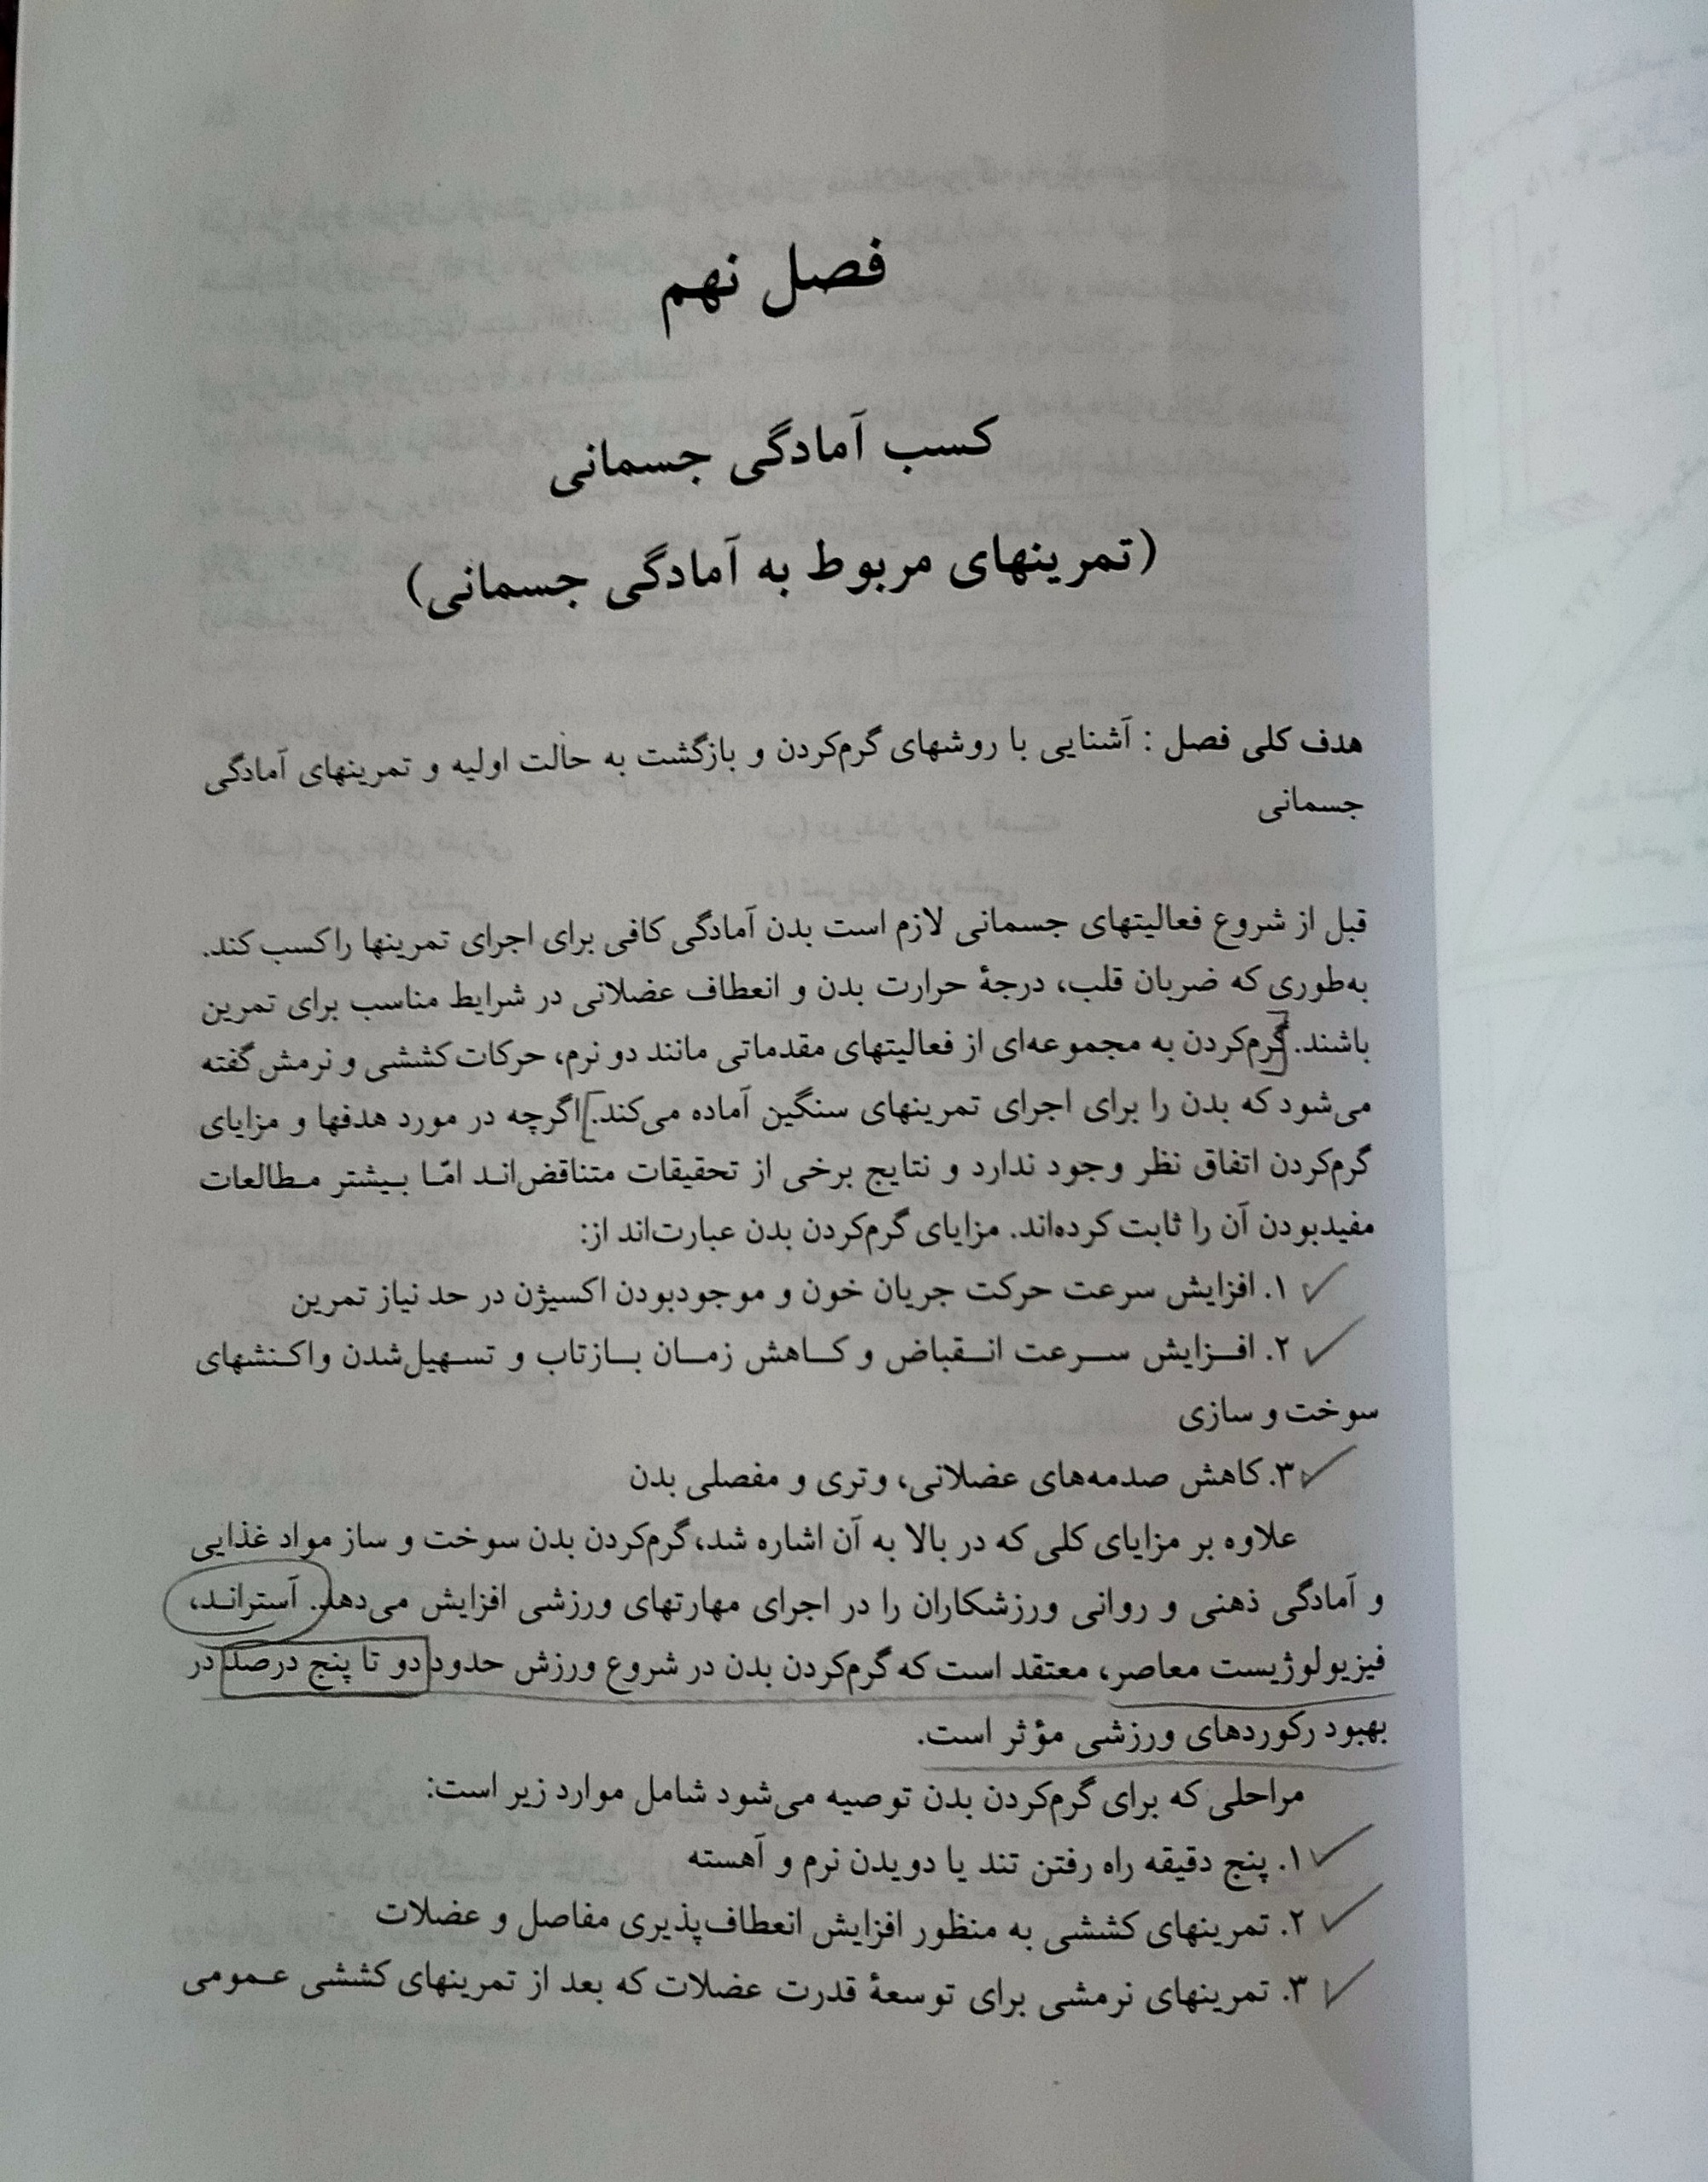 فصل نهم
کسب آمادگی جسمانی
(تمرینهای مربوط به آمادگی جسمانی)
هدف کلی فصل : آشنایی با روشهای گرم‌کردن و بازگشت به حالت اولیه و تمرینهای آمادگی
جسمانی
قبل از شروع فعالیتهای جسمانی لازم است بدن آمادگی کافی برای اجرای تمرینها را کسب کند.
به‌طوری که ضربان قلب، درجهٔ حرارت بدن و انعطاف عضلانی در شرایط مناسب برای تمرین
باشند. گرم‌کردن به مجموعه‌ای از فعالیتهای مقدماتی مانند دو نرم، حرکات کششی و نرمش گفته
می‌شود که بدن را برای اجرای تمرینهای سنگین آماده می‌کند. اگرچه در مورد هدفها و مزایای
گرم‌کردن اتفاق نظر وجود ندارد و نتایج برخی از تحقیقات متناقض‌اند امّا بیشتر مطالعات
مفیدبودن آن را ثابت کرده‌اند. مزایای گرم‌کردن بدن عبارت‌اند از:
۱. افزایش سرعت حرکت جریان خون و موجودبودن اکسیژن در حد نیاز تمرین
۲. افزایش سرعت انقباض و کاهش زمان بازتاب و تسهیل‌شدن واکنشهای
سوخت و سازی
۳. کاهش صدمه‌های عضلانی، وتری و مفصلی بدن
علاوه بر مزایای کلی که در بالا به آن اشاره شد، گرم‌کردن بدن سوخت و ساز مواد غذایی
و آمادگی ذهنی و روانی ورزشکاران را در اجرای مهارتهای ورزشی افزایش می‌دهد. آستراند،
فیزیولوژیست معاصر، معتقد است که گرم‌کردن بدن در شروع ورزش حدود دو تا پنج درصد در
بهبود رکوردهای ورزشی مؤثر است.
مراحلی که برای گرم‌کردن بدن توصیه می‌شود شامل موارد زیر است:
۱. پنج دقیقه راه رفتن تند یا دویدن نرم و آهسته
۲. تمرینهای کششی به منظور افزایش انعطاف‌پذیری مفاصل و عضلات
۳. تمرینهای نرمشی برای توسعهٔ قدرت عضلات که بعد از تمرینهای کششی عمومی